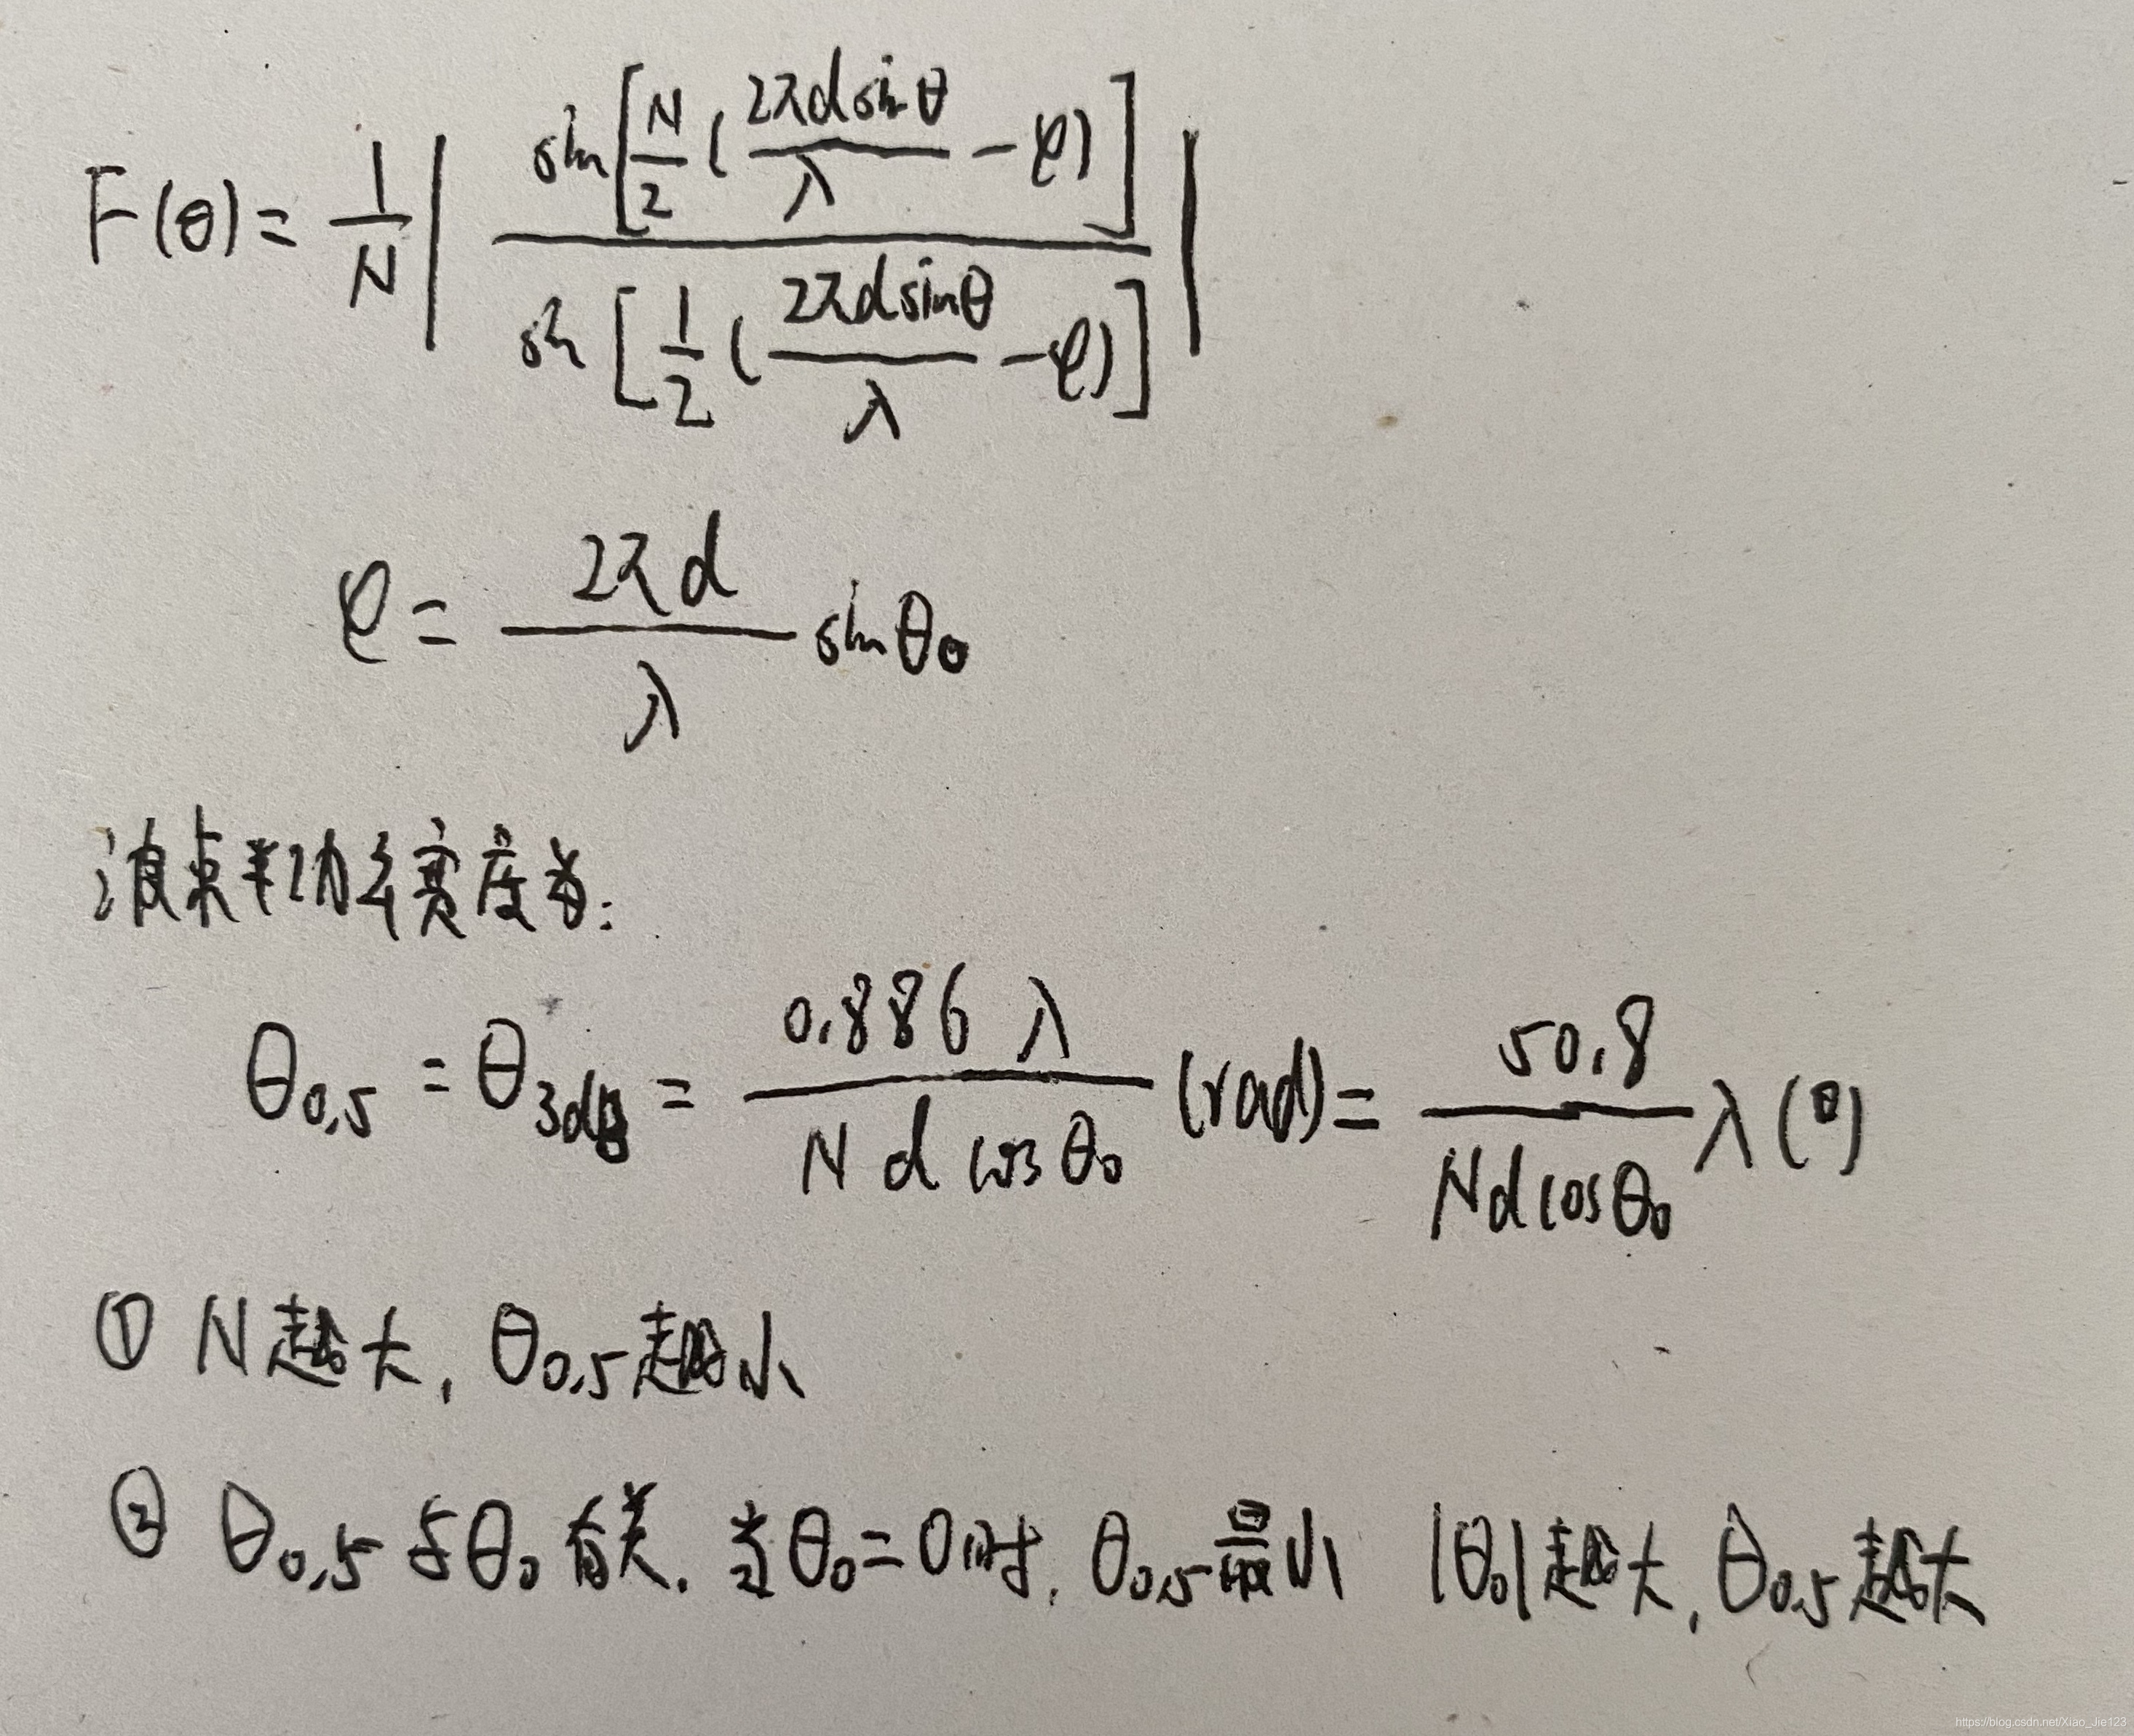 F(θ) = 1/N | sin[N/2(2πdsinθ/λ - φ)] / sin[1/2(2πdsinθ/λ - φ)] |
φ = 2πd/λ sinθ₀
波束半功率宽度为:
θ0.5 = θ3dB = 0.886λ/(Nd cosθ₀) (rad) = 50.8/(Nd cosθ₀) λ(°)
① N越大, θ0.5越小
② θ0.5与θ₀有关. 当θ₀=0时, θ0.5最小 |θ₀|越大, θ0.5越大
https://blog.csdn.net/Xiao_Jie123